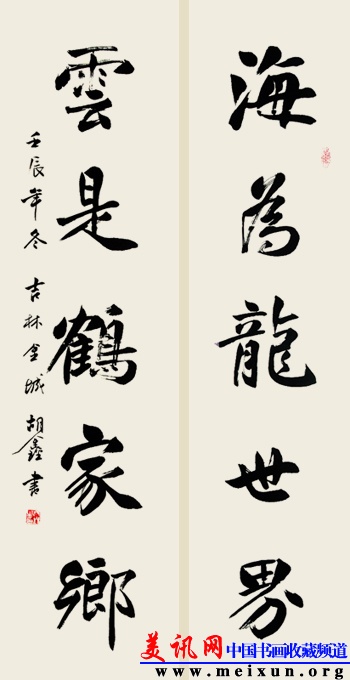 海為龍世界
雲是鶴家鄉
壬辰年冬 吉林全城 胡鑫書
美讯网 中国书画收藏频道
www.meixun.org